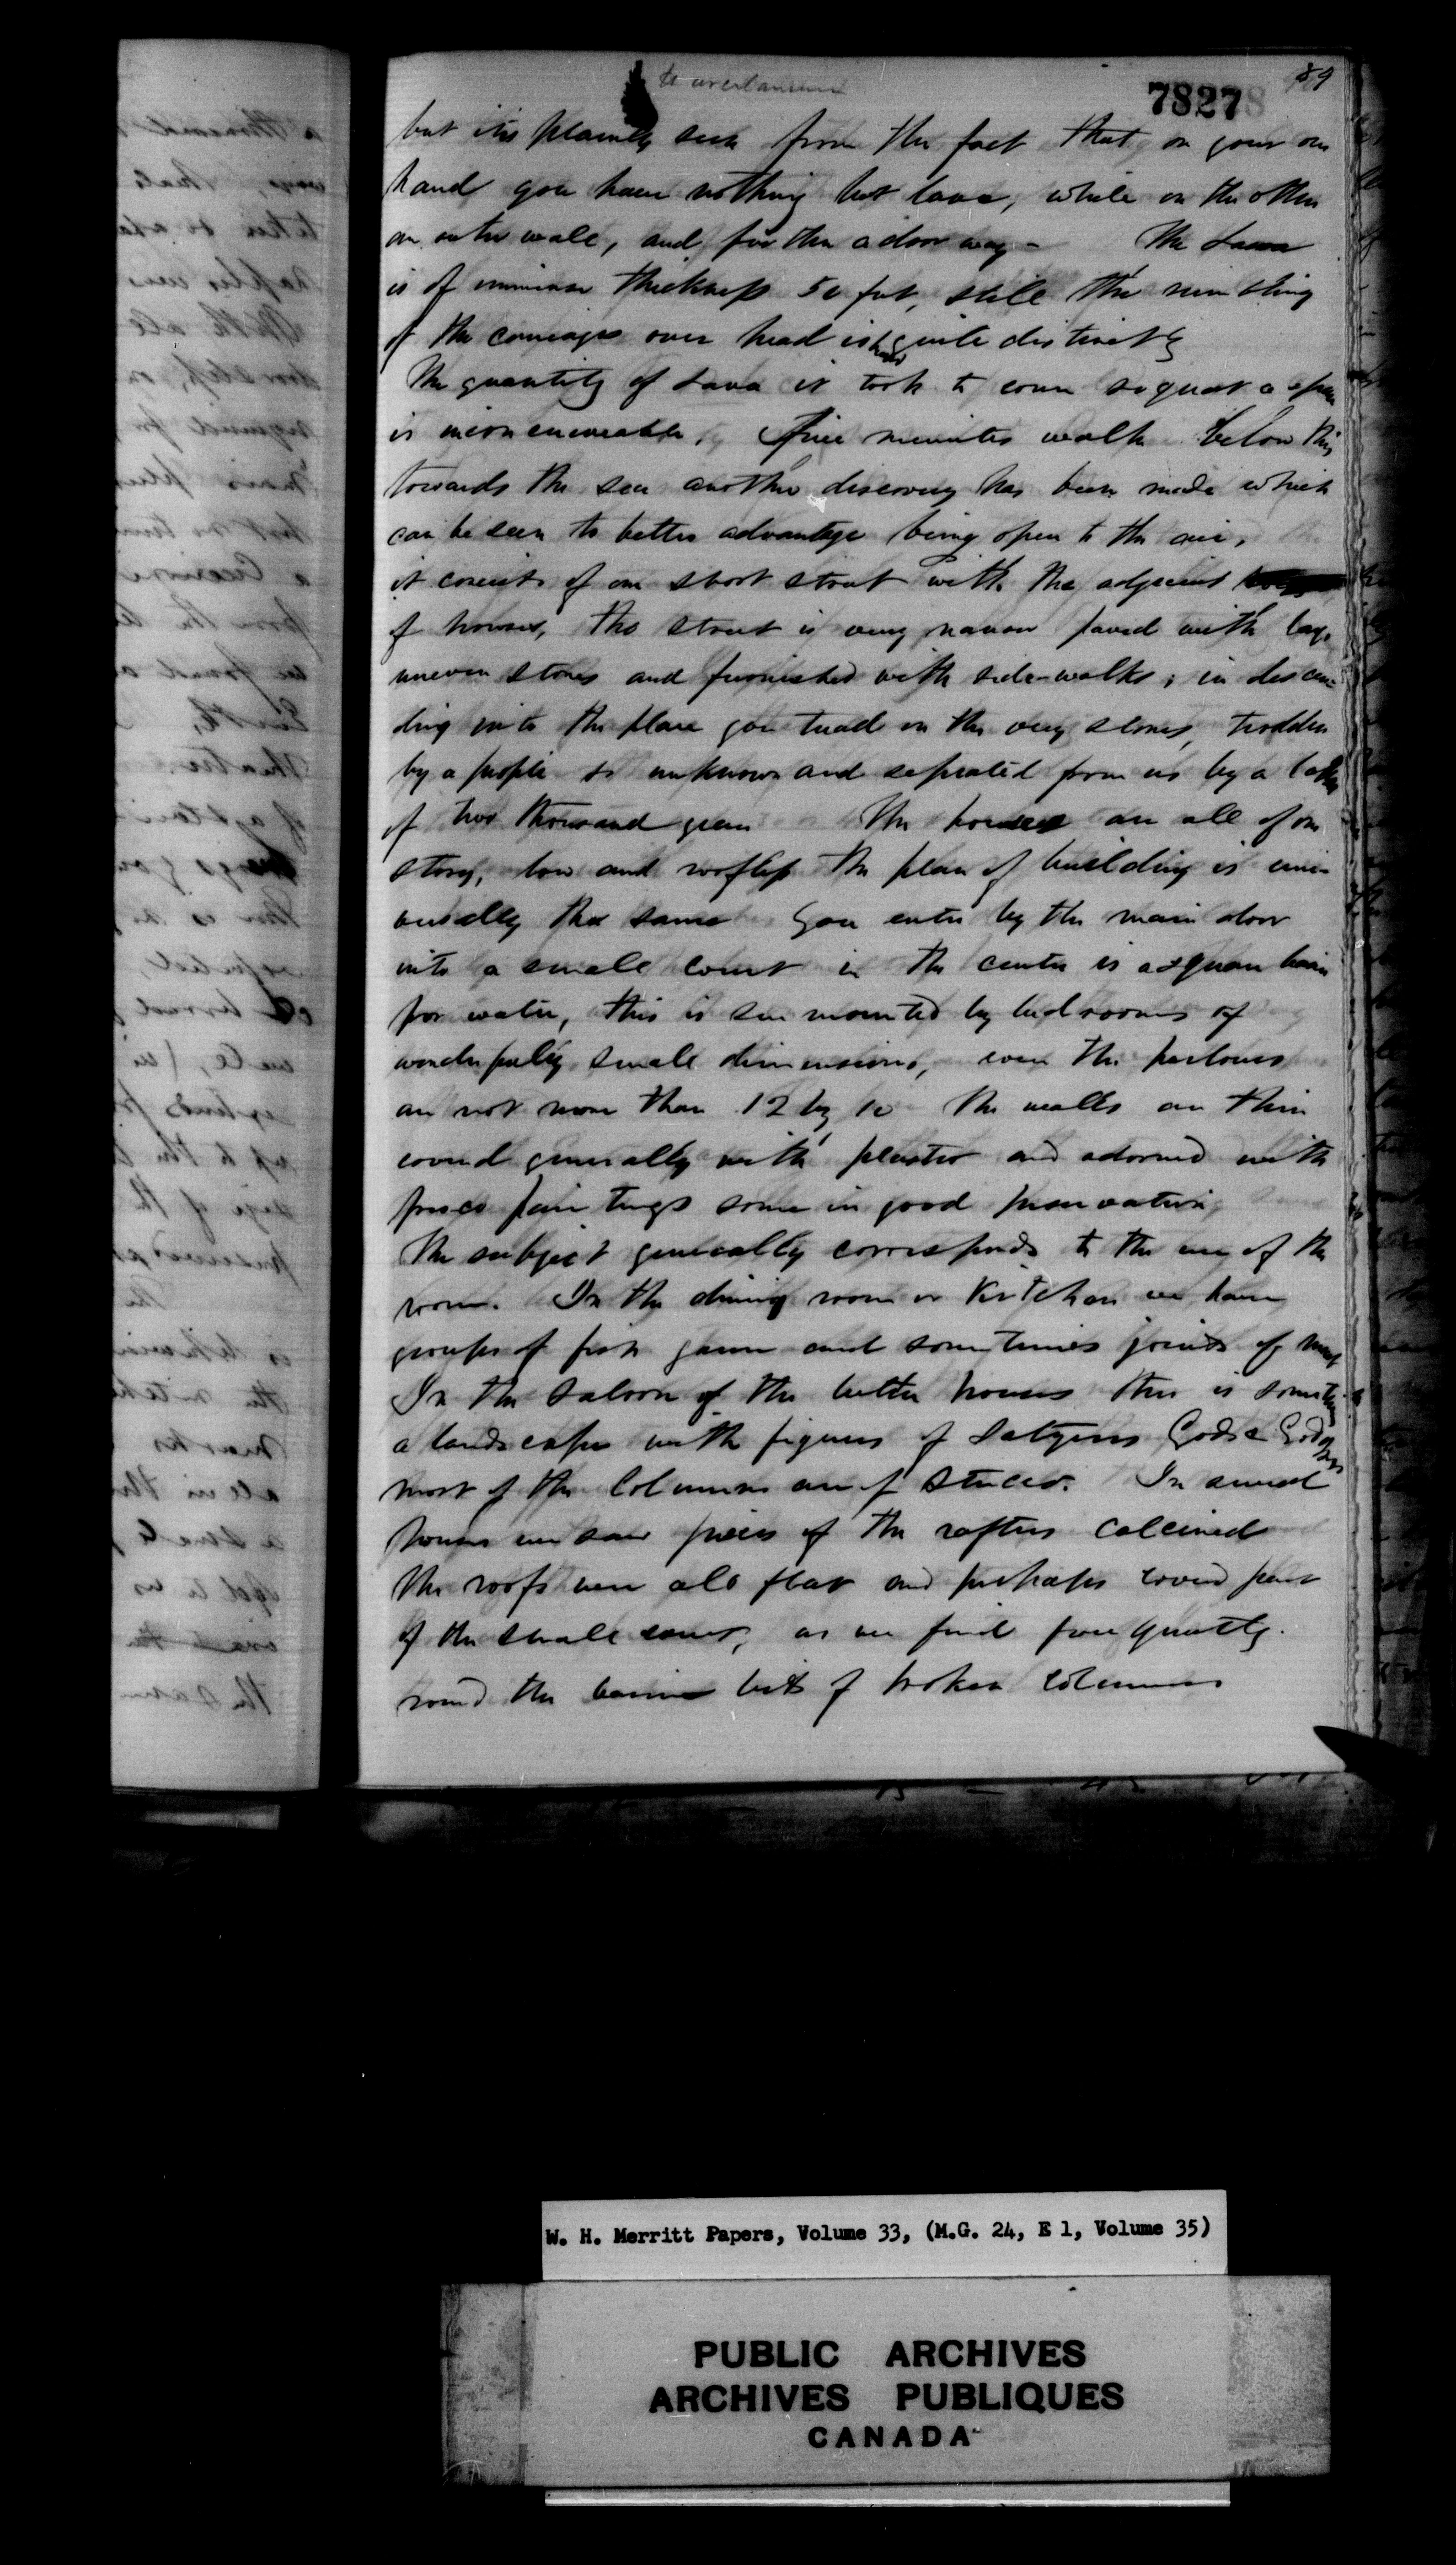 89
7827
but it is plainly seen from the fact that, on your one
hand you have nothing but lava, while on the other
an outer wall, and further a door way - The Lava
is of immense thickness 50 feet, still the rumbling
of the carriages over head is heard quite distinctly
The quantity of Lava it took to cover so great a space
is inconceiveable. Five minutes walk below this
towards the sea another discovery has been made which
can be seen to better advantage being open to the air,
it consists of one short street with the adjacent
of houses, the street is very narrow paved with large
uneven stones and furnished with side-walks; in descen-
ding into the place you tread on the very stones, trodden
by a people so unknown and seprated from us by a lapse
of two thousand years The houses are all of one
story, low and roofless the plan of building is uni-
versally the same You enter by the main door
into a small court in the center is a square basin
for water, this is surrounded by bedrooms of
wonderfully small dimensions, even the parlours
are not more than 12 by 10 The walls are thin
covered generally with plaster and adorned with
fresco paintings some in good preservation,
The subject generally corresponds to the use of the
room. In the dining room or Kitchen we have
groups of fish game and sometimes joints of meat
In the Saloon of the better houses there is sometimes
a landscape with figures of Satyrs Gods & Godesses
most of the Columns are of Stucco. In several
houses we saw pieces of the rafters calcined
The roofs were all flat and perhaps covered part
of the small court, as we find frequently.
round the basin bits of broken columns
W. H. Merritt Papers, Volume 33, (M.G. 24, E 1, Volume 35)
PUBLIC ARCHIVES
ARCHIVES PUBLIQUES
CANADA